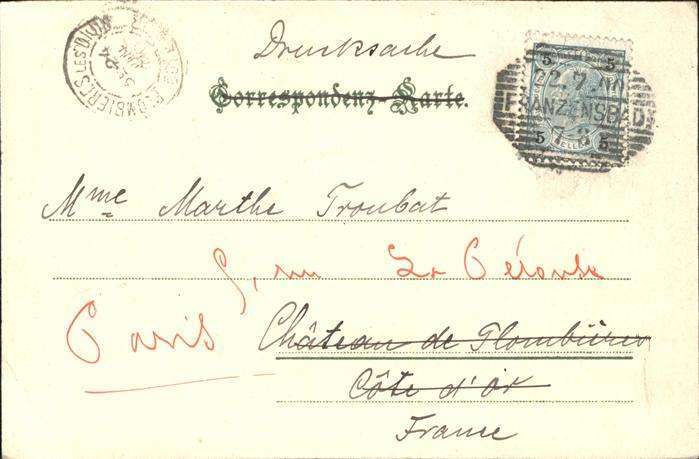 Drucksache
Correspondenz-Karte.
PLOMBIÈRES LES DIJON
24
5 HELLER 5
22.7.00
FRANZENSBAD
5 5
Mme Marthe Troubat
9, rue La
Paris
Château de Plombières
Côte d'or
France